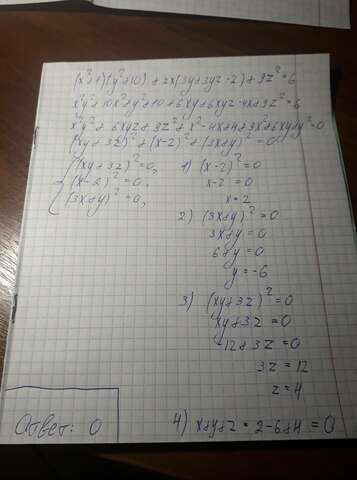 (x²+1)(y²+10)+2x(3y+3yz-2)+9z²=6
x²y²+10x²+y²+10+6xy+6xyz-4x+9z²=6
x²y²+6xyz+9z²+x²-4x+4+9x²+6xy+y²=0
(xy+3z)²+(x-2)²+(3x+y)²=0
(xy+3z)²=0,
(x-2)²=0,
(3x+y)²=0,
1) (x-2)²=0
x-2=0
x=2
2) (3x+y)²=0
3x+y=0
6+y=0
y=-6
3) (xy+3z)²=0
xy+3z=0
-12+3z=0
3z=12
z=4
4) x+y+z=2-6+4=0
Ответ: 0